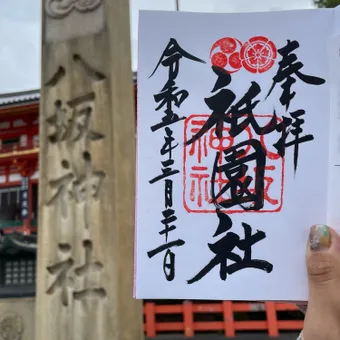 八坂神社
奉拝
祇園社
八坂
神社
令和五年三月二十一日